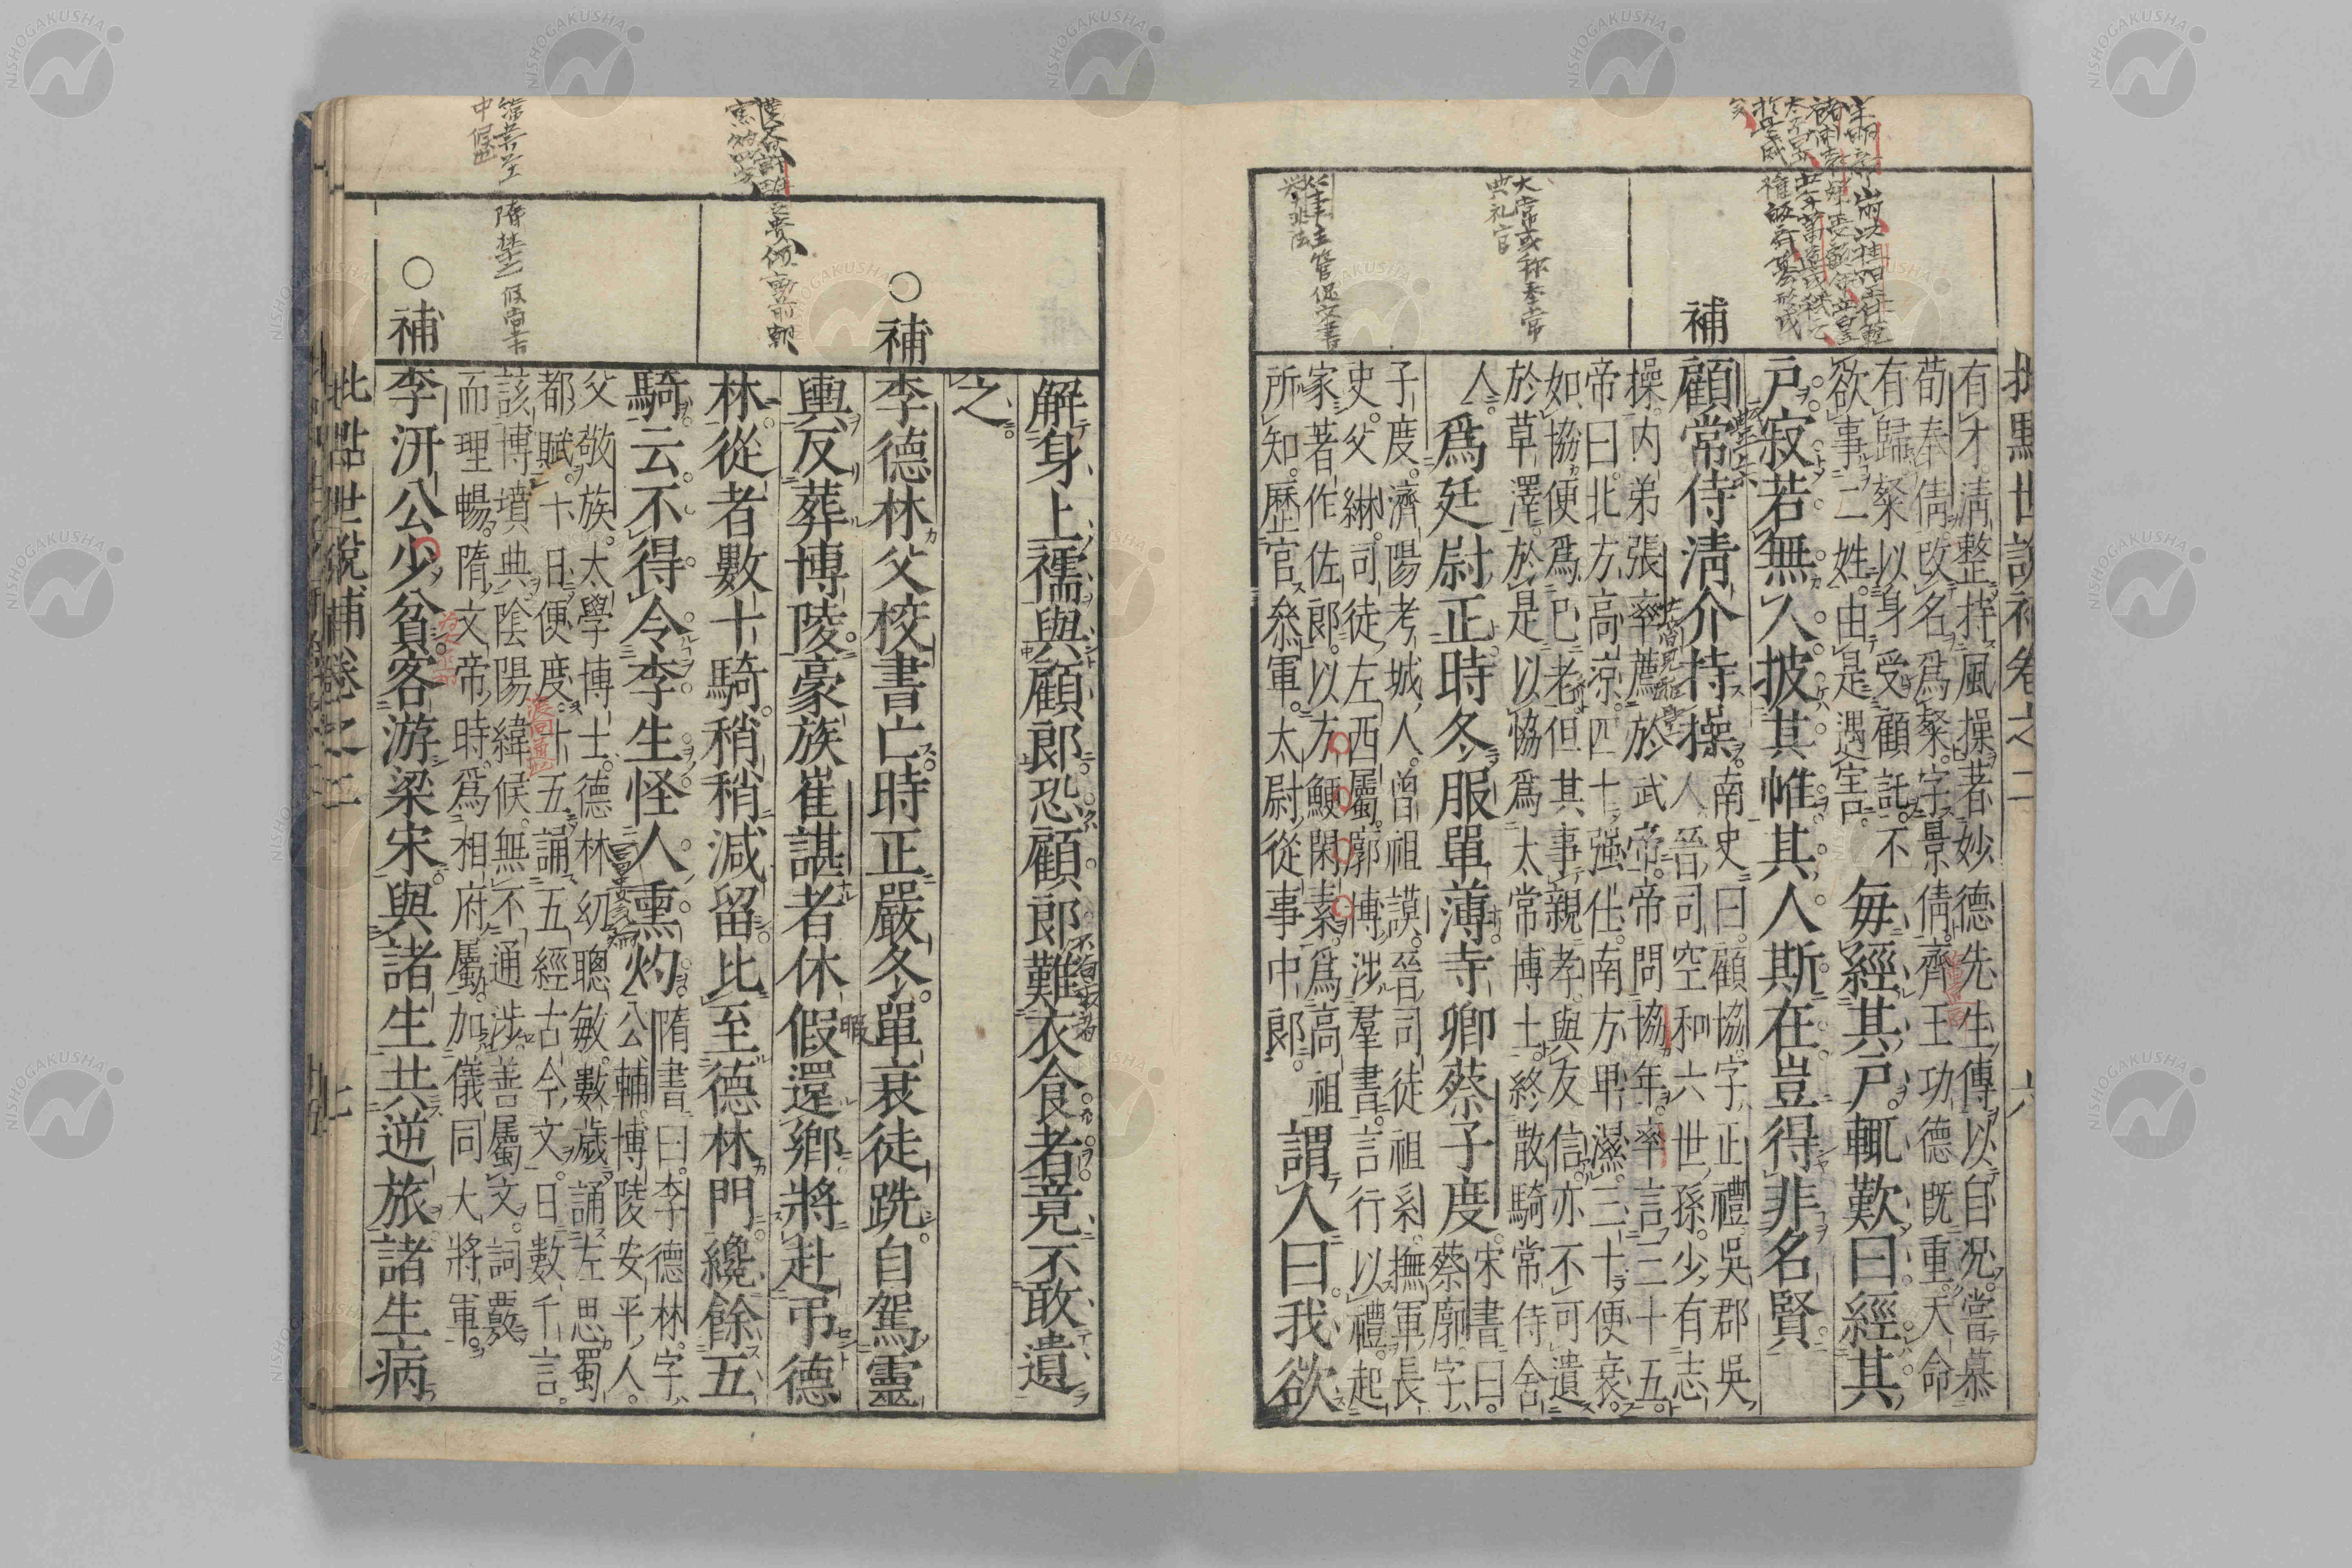 有才清整持風操著妙德先生傳以自况嘗慕
荀奉倩改名爲粲字景倩齊王功德既重天命
有歸粲以身受顧託不
欲事二姓由是遇害
每經其戶輒歎曰經其
戶寂若無人披其帷其人斯在豈得非名賢
補
顧常侍清介持操
南史曰顧協字正禮吳郡吳
人晉司空和六世孫少有志
操内弟張率薦於武帝帝問協年率言三十五
帝曰北方高涼四十强仕南方卑濕三十便衰
如協便爲已老但其事親孝與友信亦不可遺
於草澤於是以協爲太常博士終散騎常侍舍
人
爲廷尉正時冬服單薄寺卿蔡子度
宋書曰
蔡廓字
子度濟陽考城人曾祖謨晉司徒祖系撫軍長
史父綝司徒左西屬廓博涉羣書言行以禮起
家著作佐郎以方鯁閑素爲高祖
所知歷官叅軍太尉從事中郎
謂人曰我欲
大常或称奉常
典礼官
解身上襦與顧郎恐顧郎難衣食者竟不敢遺
之
○補
李德林父校書亡時正嚴冬單衰徒跣自駕靈
輿反葬博陵豪族崔諶者休假還鄉將赴弔德
林從者數十騎稍稍減留比至德林門纔餘五
騎云不得令李生怪人熏灼
隋書曰李德林字
公輔博陵安平人
父敬族太學博士德林幼聰敏數歲誦左思蜀
都賦十日便度十五誦五經古今文日數千言
該博墳典陰陽緯候無不通涉善屬文詞覈
而理暢隋文帝時爲相府屬加儀同大將軍
○補
李汧公少貧客游梁宋與諸生共逆旅諸生病
批點世說補卷之二
七
NISHOGAKUSHA